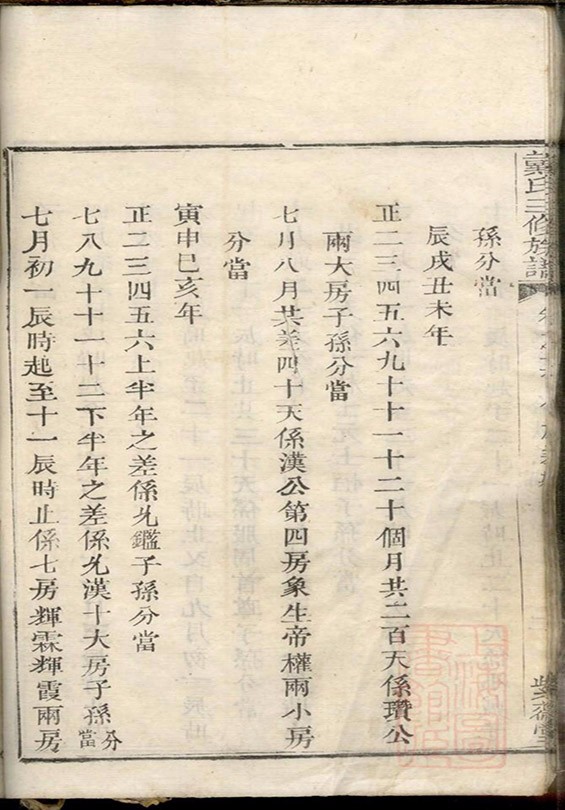 戴氏三修族譜
孫分當
辰戌丑未年
正二三四五六九十十一十二十個月共二百天係瓚公
兩大房子孫分當
七月八月共差四十天係漢公第四房象生帝權兩小房
分當
寅申巳亥年
正二三四五六上半年之差係允鑑子孫分當
七八九十十一十二下半年之差係允漢十大房子孫分當
七月初一辰時起至十一辰時止係七房輝霖輝霞兩房